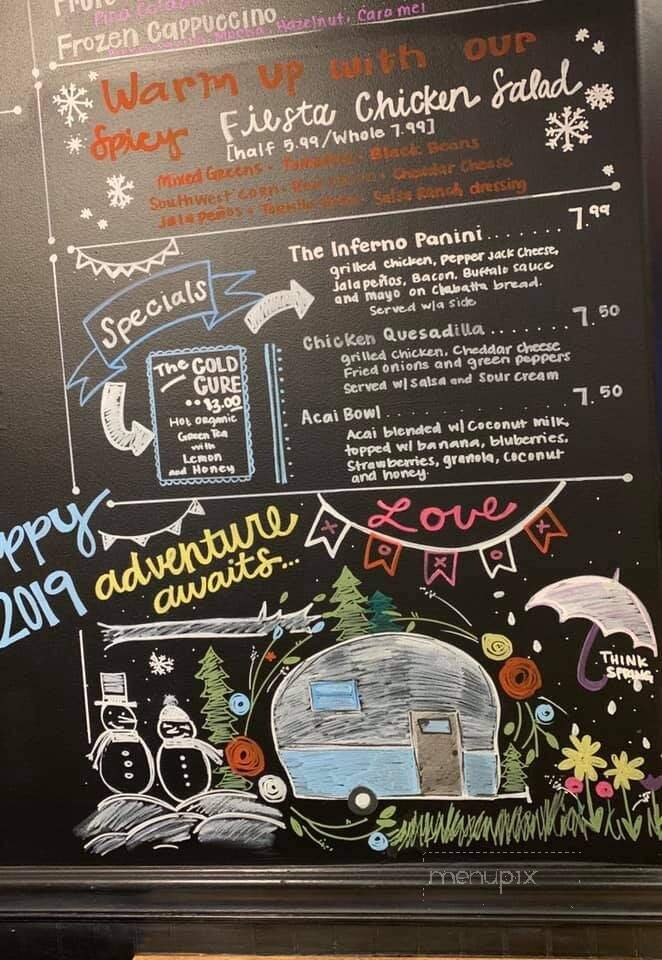 Frozen Cappuccino
Mocha, Hazelnut, Caramel
Warm up with our
Spicy Fiesta Chicken Salad
[half 5.99/Whole 7.99]
Mixed Greens • Tomatoes • Black Beans
Southwest Corn • Red • Cheddar Cheese
Jalapeños • Tortilla • Salsa Ranch dressing
Specials
The COLD
CURE
$3.00
Hot organic
Green Tea
with
Lemon
and Honey
The Inferno Panini....... 7.99
grilled chicken, Pepper Jack Cheese,
Jalapeños, Bacon, Buffalo sauce
and Mayo on Ciabatta bread.
Served w/a side
Chicken Quesadilla....... 7.50
grilled chicken, Cheddar cheese
Fried onions and green peppers
Served w/ salsa and sour cream
Acai Bowl 7.50
Acai blended w/ Coconut milk,
topped w/ banana, bluberries,
Strawberries, granola, coconut
and honey.
ppy
2019
adventure
awaits...
Love
X O X O X
THINK
SPRING
menupix